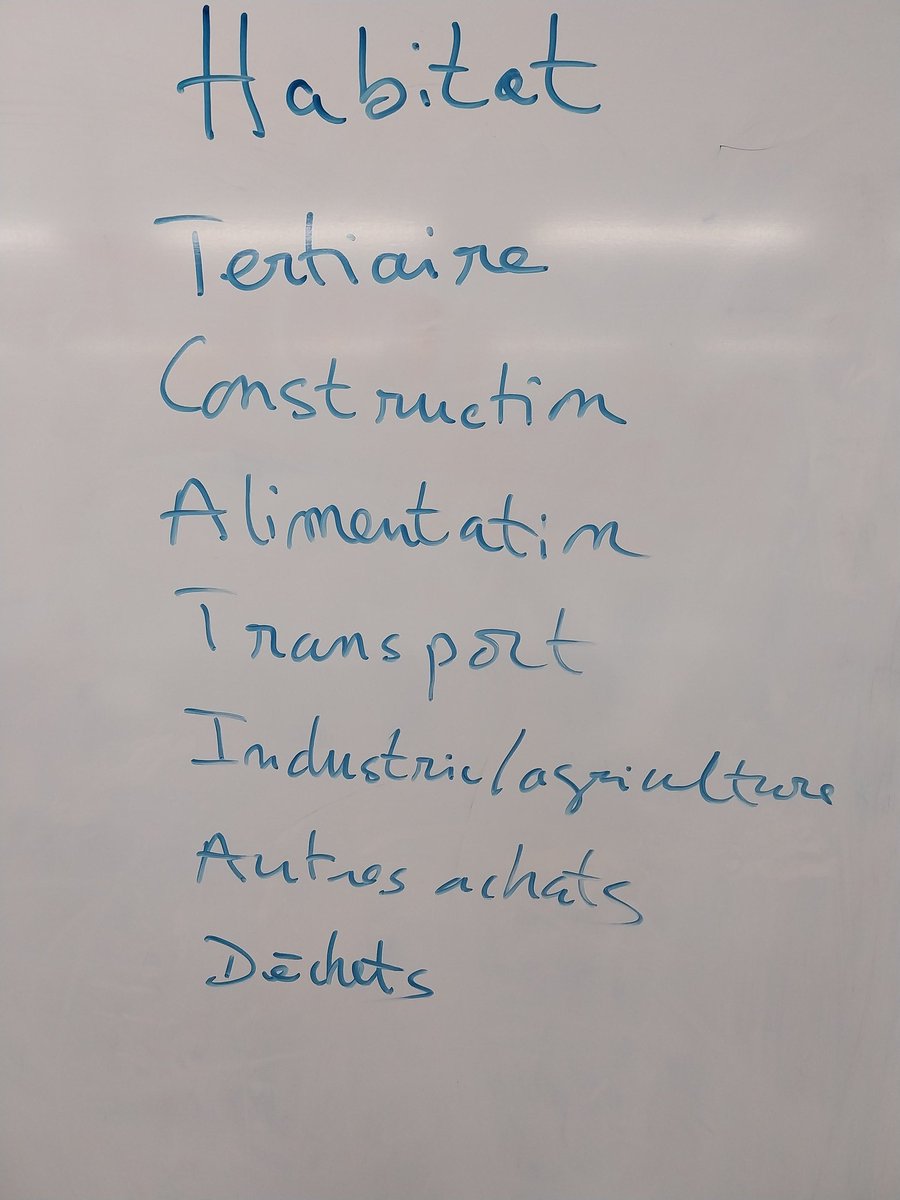 Habitat
Tertiaire
Construction
Alimentation
Transport
Industrie/agriculture
Autres achats
Déchets